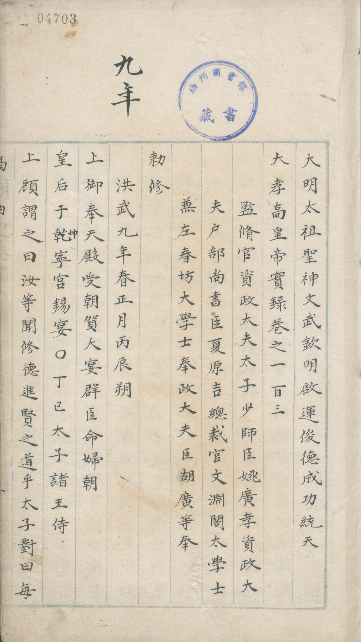 04703
九年
藏書
大明太祖聖神文武欽明啟運俊德成功統天
大孝高皇帝實錄卷之一百三
監脩官資政大夫太子少師臣姚廣孝資政大
夫戶部尚書臣夏原吉總裁官文淵閣大學士
兼左春坊大學士奉政大夫臣胡廣等奉
勅修
洪武九年春正月丙辰朔
上御奉天殿受朝賀大宴群臣命婦朝
皇后于乾寧宮錫宴〇丁巳太子諸王侍
坤
上顧謂之曰汝等聞修德進賢之道乎太子對曰每